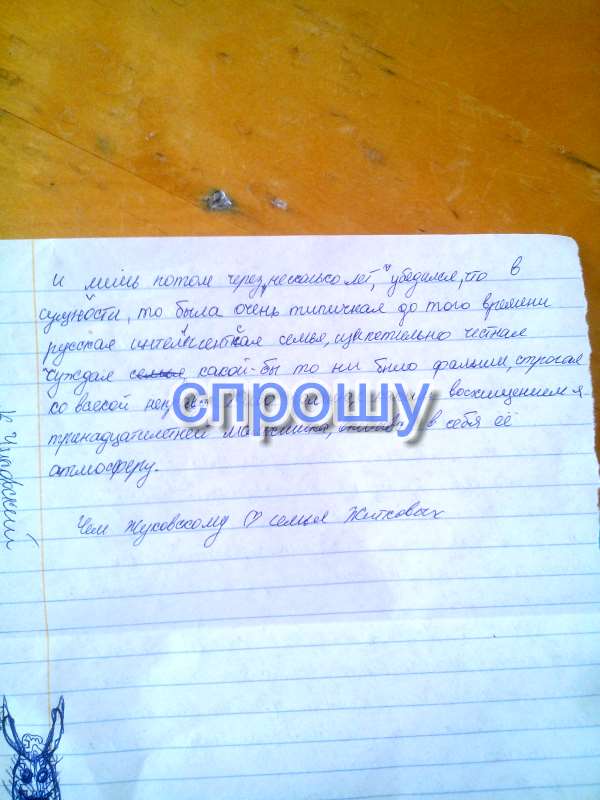 и лишь потом через несколько лет, убедился, что в
сущности, то была очень типичная до того времени
русская интелигенткая семья, щепетильно честная
чуждая семья какой-бы то ни было фальши, строгая
со всякой неп восхищением я
спрошу
тринадцатилетней в себя её
атмосферу.
Чем Жуковскому семья Житковых
к Чуковский